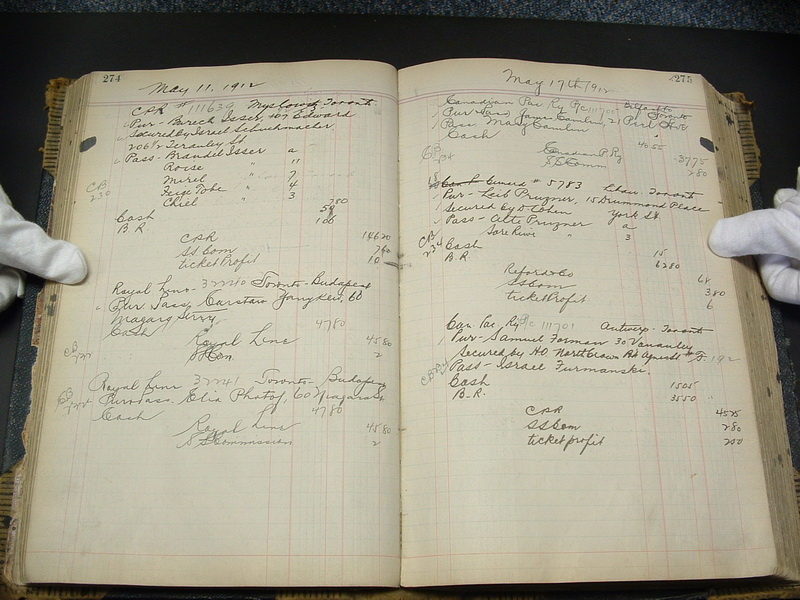 274
May 11, 1912
CPR # 111639 Myslowitz Toronto
Pur - Barech Isser, 107 Edward
Secured by Israel Schuchmacher
206½ Terauley St
Pass - Brandel Isser a
Roise " 11
Mirel " 7
Feige Tobe " 4
Chiel " 3
CB
230
780
Cash 59
B R 106
CPR 14620
SS Com 760
ticket Profit 10
Royal Line - 37240 Toronto - Budapest
Pur Pass, 60
Cash 4780
Royal Line 4580
SS Com. 2
Royal Line 37241 Toronto - Budapest
Pur Pass. Elia Photof, 60 Niagara St
Cash 4780
Royal Line 4580
SS Commission 2
275
May 17th/1912
Canadian Pac Ry Belfast to Toronto
Pur Pass, James Camlin, 21
Pass Mary Camlin
Cash 4055
Canadian P Ry 3775
SS Comm 280
Cunard # 5783 Libau - Toronto
Pur - Leib Pruzner, 15 Drummond Place
Secured by D Cohen York St.
Pass - Alte Pruzner a
Sore Riwe " 3
CB
234
Cash 15
B.R 6280
Reford & Co 68
SS Com 380
ticket Profit 6
Can. Pac, Ry 111701 Antwerp - Toronto
Pur - Samuel Forman 30 Vanauley
Secured by H.O.
Pass - Israel Furmanski.
Cash 1505
B.R. 3550
CPR 4575
SS Com 280
ticket profit 200